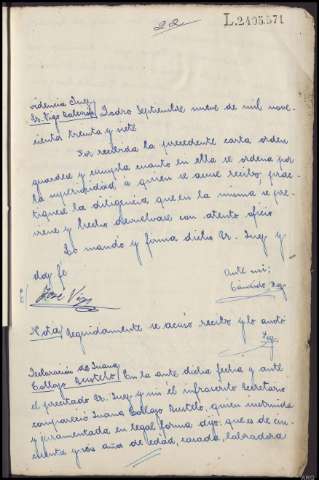 22
L.2405.571
videncia Juez
Sr. Vigo Valencia / Padro Septiembre nueve de mil nove-
cientos treinta y siete
Por recibida la precedente carta orden
guardese y cumpla cuanto en ella se ordena por
la superioridad a quien se acuse recibo, prac-
tiquese la diligencia que en la misma se pre-
viene y hecho devuelvase con atento oficio
Lo mando y firma dicho Sr. Juez y
doy fé
Ante mi;
José Vigo
Nota / Seguidamente se acuso recibo y lo anoto
Declaración de Juana
Gallego Sustelo / En la ante dicha fecha y ante
el precitado Sr. Juez y mi el infrascrito Secretario
compareció Juana Gallego Sustelo, quien instruida
y juramentada en legal forma dijo: que es de cin-
cuenta y seis años de edad, casada, labradora